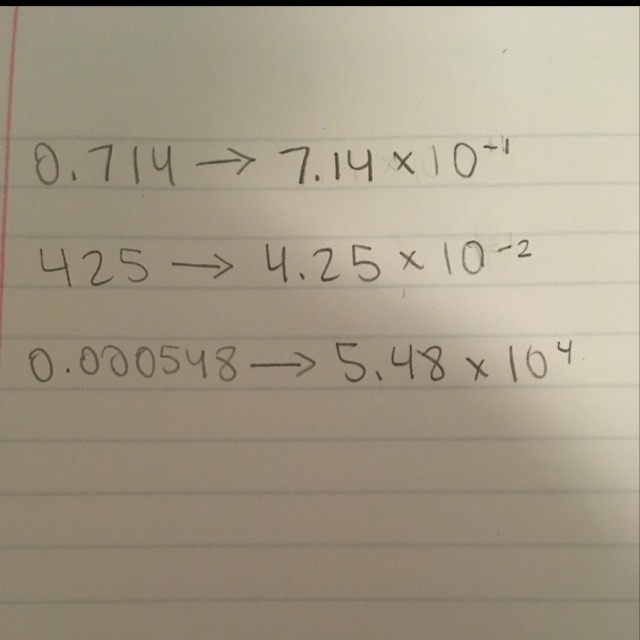 0.714 → 7.14 × 10⁻¹
425 → 4.25 × 10⁻²
0.000548 → 5.48 × 10⁴